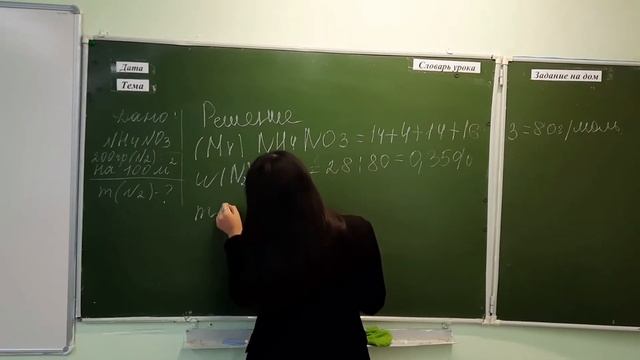 Дата
Тема
Словарь урока
Задание на дом
Дано:
NH4NO3
200гр(N2)
на 100 м²
m(N2)-?
Решение
(Mr) NH4NO3 = 14+4+14+16 3=80г/моль
w(N = 28:80=0,35%
m